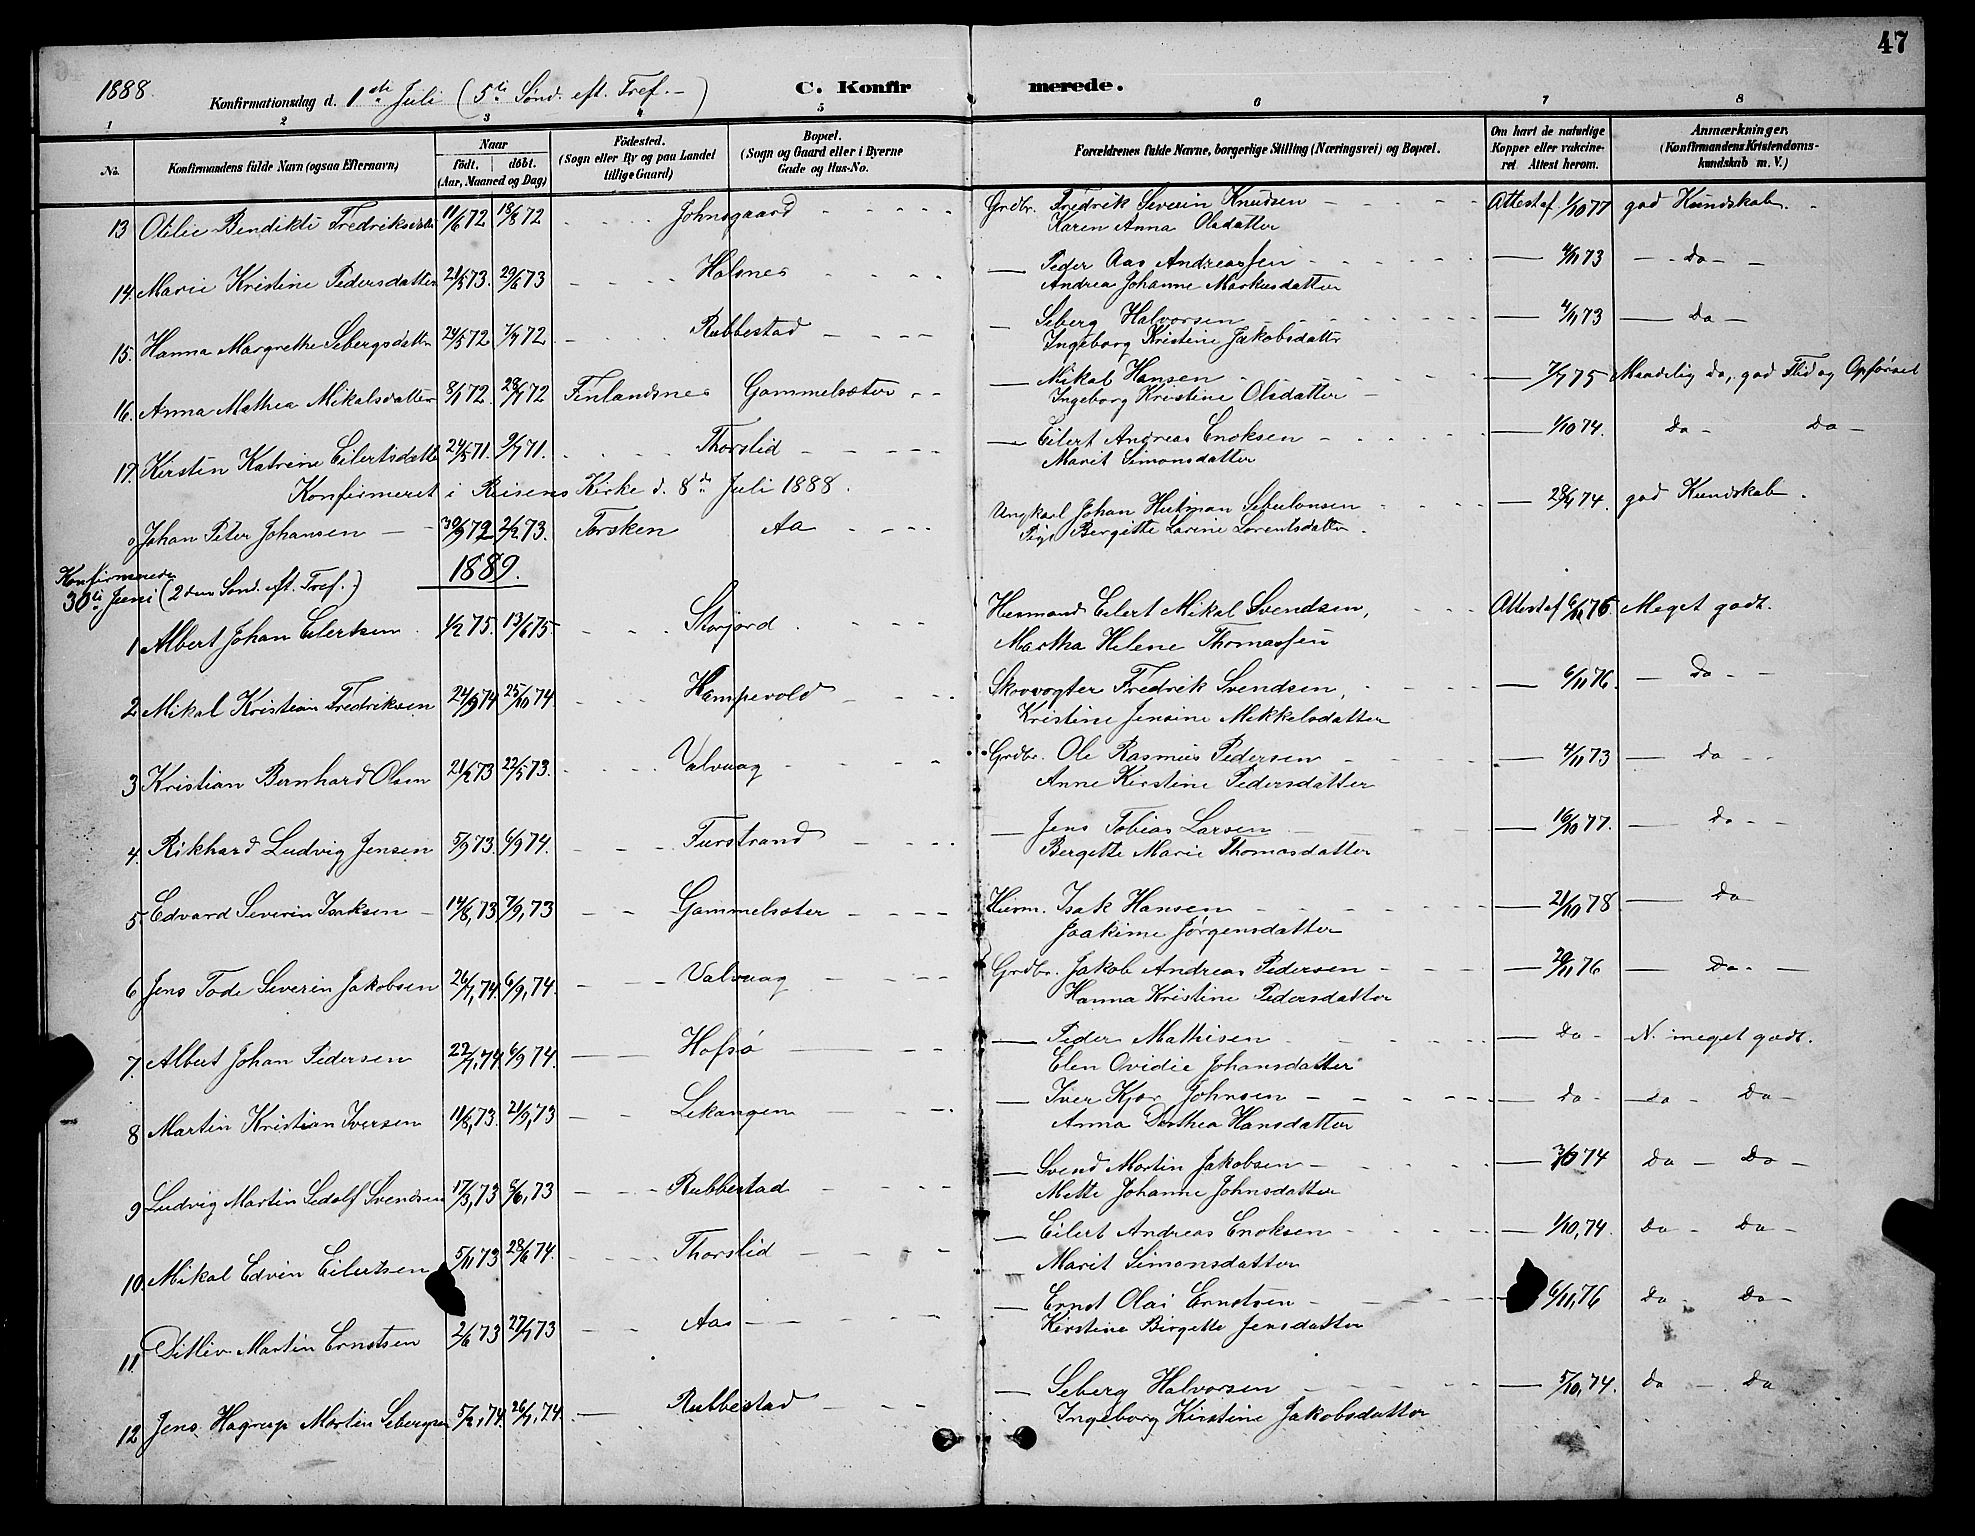 47
1888
Konfirmationsdag d. 1ste Juli (5te Sønd. eft. Tref. -)
C. Konfirmerede.
1 2 3 4 5 6 7 8
No. Konfirmandens fulde Navn (ogsaa Efternavn) Naar født. døbt. (Aar, Maaned og Dag) Fødested. (Sogn eller By og paa Landet tillige Gaard) Bopæl. (Sogn og Gaard eller i Byerne Gade og Hus-No. Forældrenes fulde Navne, borgerlige Stilling (Næringsvei) og Bopæl. Om havt de naturlige Kopper eller vakcineret Attest herom. Anmærkninger. (Konfirmandens Kristendomskundskab m. V.)
13 Otilie Bendikte Fredriksdatter 11/6 72 18/8 72 Johnsgaard Grdbr. Fredrik Severin Knudsen Attest af 1/10 77 god Kundskab.
Karen Anna Olsdatter
14. Marie Kristine Pedersdatter 21/5 73. 29/6 73 Halsnes — Peder Aas Andreassen — 4/11 73 - Do -
Andrea Johanne Markusdatter
15. Hanna Margrethe Sebergsdattr 24/5 72 7/7 72 Rubbestad — Seberg Halvorsen — 4/11 73 — Do -
Ingeborg Kristine Jakobsdattr
16. Anna Mathea Mikalsdatter 8/1 72. 28/7 72 Finlandsnes Gammelsæter — Mikal Hansen — 7/7 75 Maadelig do, god Flid og Opførsel
Ingeborg Kristine Olsdatter
17. Kersten Katrine Eilertsdatter 24/5 71 9/7 71. Thorslid — Eilert Andreas Enoksen — 1/10 74. Do - Do -
Marit Simonsdatter
Konfirmeret i Reisens Kirke d. 8de Juli 1888.
Johan Peter Johansen — 30/9 72 2/2 73. Torsken Aa Ungkarl Johan Hutman Sebulonsen — 28/4 74. god Kundskab.
Pige Bergitte Larine Lorentsdatter
1889.
Konfirmerede
30te Juni (2den Sønd. eft. Tref.)
1 Albert Johan Eilertsen 1/2 75. 13/6 75. Storjord Husmand Eilert Mikal Svendsen, Attest af 6/11 76 Meget godt.
Martha Helene Thomassen
2 Mikal Kristian Fredriksen 24/9 74 25/10 74. Kampevold Skovvogter Fredrik Svendsen, — 6/11 76. - Do -
Kristine Jensine Mikkelsdatter
3 Kristian Bernhard Olsen 21/2 73 22/5 73. Valvaag Grdbr. Ole Rasmus Pedersen — 4/11 73 — do -
Anne Kirstine Pedersdatter
4. Rikhard Ludvig Jensen 5/9 73. 6/9 74. Furstrand — Jens Tobias Larsen — 16/10 77. — Do -
Bergette Marie Thomasdatter
5 Edvard Severin Isaksen - 14/8, 73 7/9, 73 Gammelsæter Huvm. Isak Hansen — 21/10 78 — Do
Joakime Jørgensdatter
6 Jens Tode Severin Jakobsen 26/7, 74. 6/9, 74. Valvaag Grdbr. Jakob Andreas Pedersen — 29/11 76 — Do -
Hanna Kristine Pedersdatter
7. Albert Johan Pedersen 22/7, 74. 6/9 74. Hofsø — Peder Mathisen — Do - N. meget godt.
Elen Ovidie Johansdatter
8 Martin Kristian Iversen 11/8, 73. 21/9, 73 Lekangen — Iver Kjær Johnsen - do - - do - Do -
Anna Dorthea Hansdatter
9 Ludvig Martin Sedolf Svendsen 17/3, 73 8/6, 73 Rubbestad — Svend Martin Jakobsen — 3/10 74 Do - Do -
Mette Johanne Johnsdatter
10. Mikal Edvin Eilertsen 5/11 73 28/6 74. Thorslid — Eilert Andreas Enoksen — 1/10, 74. Do - Do -
Marit Simonsdatter
11 Ditlev Martin Ernstsen 2/6 73 27/7 73 Aas — Ernst Olai Ernstsen 6/11, 76 Do - Do -
Kirstine Birgette Jensdatter
12 Jens Hagrup Martin Sebergsen 5/2, 74. 26/7, 74. Rubbestad — Seberg Halvorsen — 5/10, 74. Do - Do
Ingeborg Kirstine Jakobsdatter